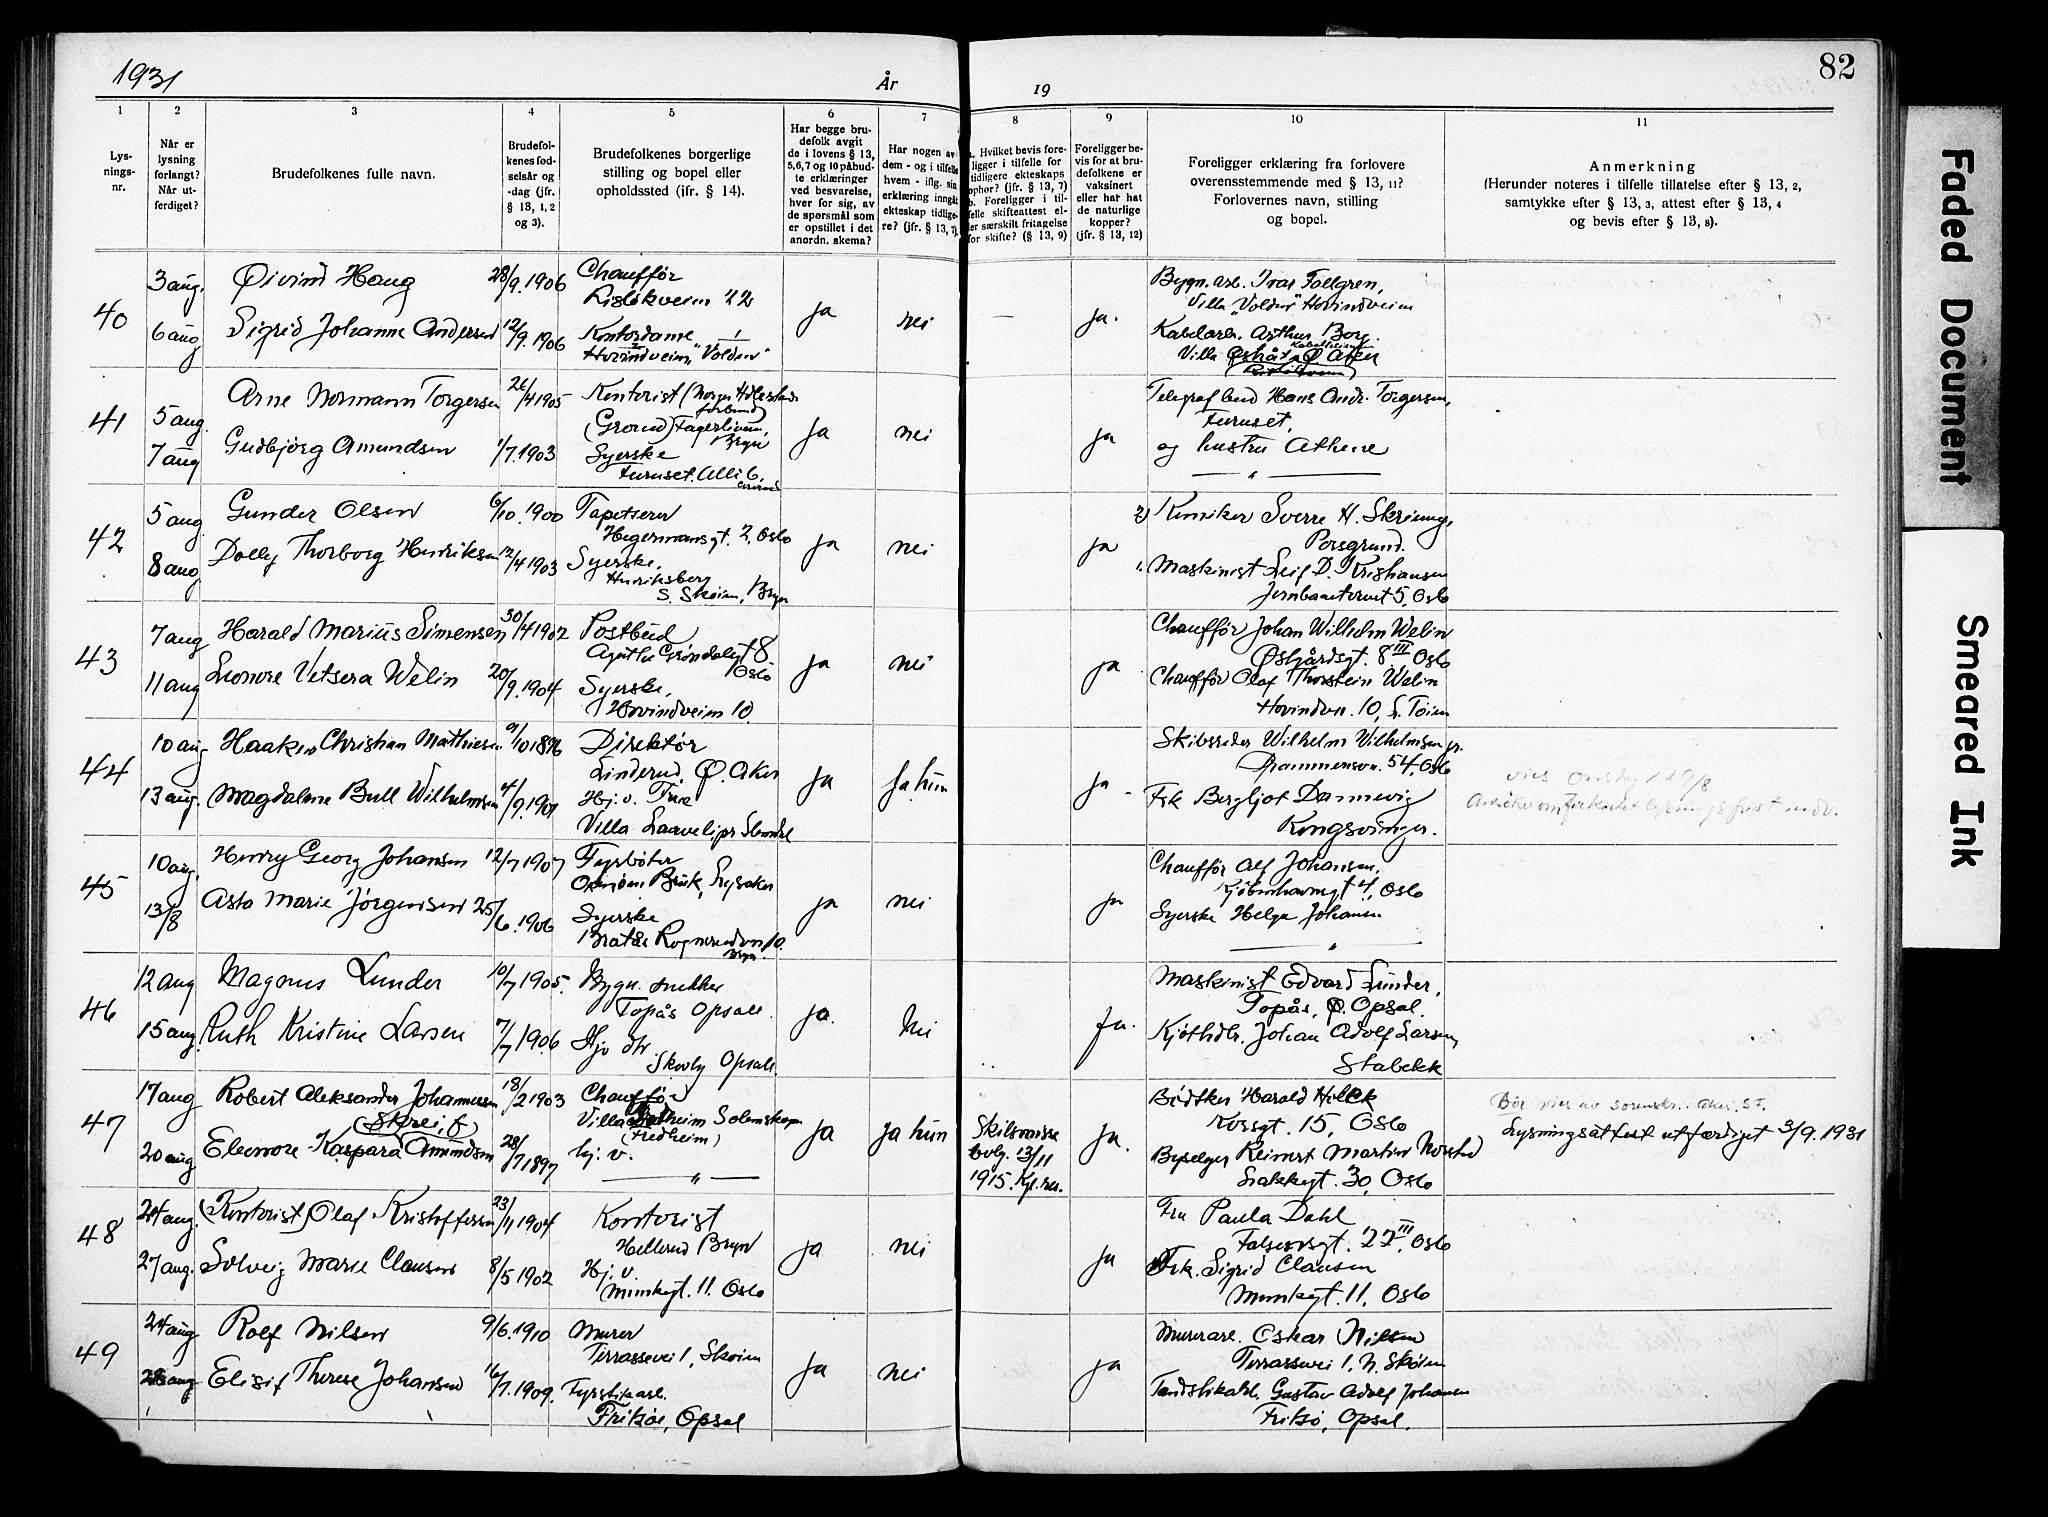 1931
År
19
82
Faded Document
Smeared Ink
1
2
3
4
5
6
7
8
9
10
11
Lys-
nings-
nr.
Når er
lysning
forlangt?
Når ut-
ferdiget?
Brudefolkenes fulle navn.
Brudefol-
kenes fød-
selsår og
-dag (jfr.
§ 13, 1, 2
og 3).
Brudefolkenes borgerlige
stilling og bopel eller
opholdssted (jfr. § 14).
Har begge bru-
defolk avgit
de i lovens § 13,
5,6,7 og 10 påbud-
te erklæringer
ved besvarelse,
hver for sig, av
de spørsmål som
er opstillet i det
anordn. skema?
Har nogen av
dem - og i tilfelle
hvem - iflg. sin
erklæring inngåt
ekteskap tidlige-
re? (jfr. § 13, 7).
a. Hvilket bevis fore-
ligger i tilfelle for
tidligere ekteskaps
ophør? (jfr. § 13, 7)
b. Foreligger i til-
felle skifteattest el-
ler særskilt fritagelse
for skifte? (§ 13, 9)
Foreligger be-
vis for at bru-
defolkene er
vaksinert
eller har hat
de naturlige
kopper?
(jfr. § 13, 12)
Foreligger erklæring fra forlovere
overensstemmende med § 13, 11?
Forlovernes navn, stilling
og bopel.
Anmerkning
(Herunder noteres i tilfelle tillatelse efter § 13, 2,
samtykke efter § 13, 3, attest efter § 13, 4
og bevis efter § 13, 8).
40
3 aug.
6 aug
Øivind Haug
Sigrid Johanne Andersen
28/9.1906
12/9.1906
Chauffør
Risløkveien 22
Kontordame
Hovindveien, "Volden"
ja
nei
—
ja.
Bygn. arb. Ivar Follgren,
Villa "Volden" Hovindveien
Kabelarb. Arthur Borg.
Villa Ø Aker
41
5 aug.
7 aug
Arne Normann Torgersen
Gudbjørg Amundsen
26/4 1905
1/7.1903
Kontorist (Norges
forbund)
(Grorud) Fagerliveien,
Bryn
Syerske
Furuset. Alli 6.
Grorud
ja
nei
ja
Telegrafbud Hans Andr. Torgersen,
Furuset,
og hustru Athene
— " —
42
5 aug
8 aug
Gunder Olsen
Dolly Thorborg Henriksen
6/10.1900
12/4 1903
Tapetserer
Hegermansgt. 2, Oslo
Syerske,
Henriksberg
S. Skøien, Bryn
ja
nei
ja
2) Kemiker Sverre H. Skriung,
Porsgrund.
1. Maskinist Leif D. Kristiansen
Jernbanetorvet 5, Oslo
43
7 aug
11 aug
Harald Marius Simensen
Leonore Vetsera Welin
30/4 1902
20/9.1904
Postbud
Agathe Grøndalsgt 8
Oslo
Syerske,
Hovindveien 10.
ja
nei
ja
Chauffør Johan Wilhelm Welin
Østgårdsgt. 8 III Oslo
Chauffør Olaf Thorstein Welin
Hovindvn. 10, L. Tøien
44
10 aug
13 aug.
Haaken Christian Mathiesen
Magdalene Bull Wilhelmsen
9/10 1896
4/9.1901
Direktør
Linderud, Ø. Aker
Hj. v. Frue
Villa
ja
ja hun
ja
Skibsreder Wilhelm Wilhelmsen jr.
Drammensvn. 54, Oslo
Frk Bergljot Dannevig
Kongsvinger.
vies onsdag 19/8
45
10 aug.
13/8
Henry Georg Johansen
Asta Marie Jørgensen
12/7 1907
25/6.1906
Fyrbøter
Bruk, Lysaker
Syerske
Bratås Rognerudvn 10.
Bryn
ja
nei
ja
Chauffør Alf Johansen,
Kjøbenhavnsgt 4, Oslo
Syerske Helga Johansen
— " —
46
12 aug
15 aug.
Magnus Lunder
Ruth Kristine Larsen
10/7 1905.
7/7 1906
Bygn. snekker
Topås Opsal.
Hjv dtr
Skovly Opsal.
ja.
Nei
Ja.
Maskinist Edvard Lunder,
Topås, Ø. Opsal.
Kjøthdlr. Johan Adolf Larsen,
Stabekk
47
17 aug
20 aug
Robert Aleksander Johannessen
(Skrei, f)
Eleonore Kaspara Amundsen
18/2 1903
28/7 1897
Chauffør
Villa Solemskogen
(Fredheim)
hj. v.
— " —
ja
ja hun
Skilsmisse
bevg. 13/11
1915. Kgl. res.
ja.
Bødtker Harald Holck
Rossgt. 15, Oslo
Byselger Reimert Martin
Lakkegt. 30, Oslo
Bør vies av sorenskr. i Aker.
Lysningsattest utferdiget 3/9.1931
48
24 aug.
27 aug.
(Kontorist) Olaf Kristoffersen
Solveig Marie Clausen
23/11 1904
8/5 1902
Kontorist
Hellerud Bryn
Hj. v.
Munkegt. 11. Oslo
ja
nei
ja
Fru Paula Dahl
Falsensgt. 22 III, Oslo
Frk. Sigrid Clausen
Munkegt. 11, Oslo
49
24 aug
28 aug
Rolf Nilsen
Elisif Therese Johansen
9/6.1910
16/7.1909.
Murer
Terrassevei 1, Skøien
Fyrstikarb.
Friksø, Opsal
ja
nei
ja
Murerarb. Oskar Nilsen
Terrassevei 1, N. Skøien
Tandstikarb. Gustav Adolf Johansen
Friksø, Opsal.